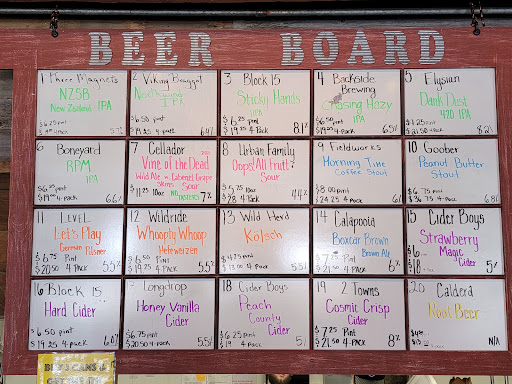 BEER BOARD
1 Three Magnets
NZSB
New Zealand IPA
$6.25 pint
4 pack 5.7%
2 Viking Braggot
IPA
pint
$19.25 4 pack
3 Block 15
Sticky Hands
IPA
$6.25 pint
$19.25 4 pack 8.1%
4 Backside
Brewing
Hazy
IPA
$6.50 pint
4 pack 6.5%
5 Elysian
Dank Dust
420 IPA
pint
$21.50 4 pack 8.2%
6 Boneyard
RPM
IPA
pint
4 pack 6.6%
7 Cellador
Vine of the Dead
Wild Ale w/ Cabernet Grape
Skins Sour
$11.25 10oz 7%
8 Urban Family
Oops! All Fruit!
Sour
$5.75 pint
$28 4 Pack 4.4%
9 Fieldworks
Morning Time
Coffee Stout
$8.00 pint
$24.25 4 pack 6%
10 Goober
Peanut Butter
Stout
$6.75 pint
4 pack 6.8%
11 Level
Let's Play
German Pilsner
$6.75 Pint
$20.50 4 Pack 5.5%
12 Wildride
Whoopty Whoop
Hefeweizen
$6.50 pint
$19.25 4 pack 5.5%
13 Wild Herd
Kölsch
$4.75 pint
4 pack 5.5%
14 Calapooia
Boxcar Brown
Brown Ale
Pint
4 pack 6%
15 Cider Boys
Strawberry
Magic
Cider
5%
16 Block 15
Hard Cider
6.50 pint
$19.25 4-pack
17 Longdrop
Honey Vanilla
Cider
$6.75 pint
$20.50 4 Pack 5.5%
18 Cider Boys
Peach
County
Cider
$6.25 pint
$19 4 Pack 5%
19 2 Towns
Cosmic Crisp
Cider
$7.25 Pint
$21.25 4 pack 8%
20 Caldera
Root Beer
N/A
CANS &